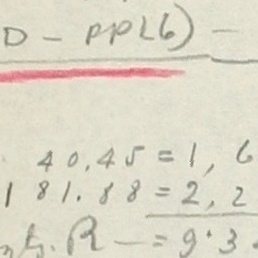 D - PPL6) -
40.45 = 1, 6
181.88 = 2, 2
R - = 9.3